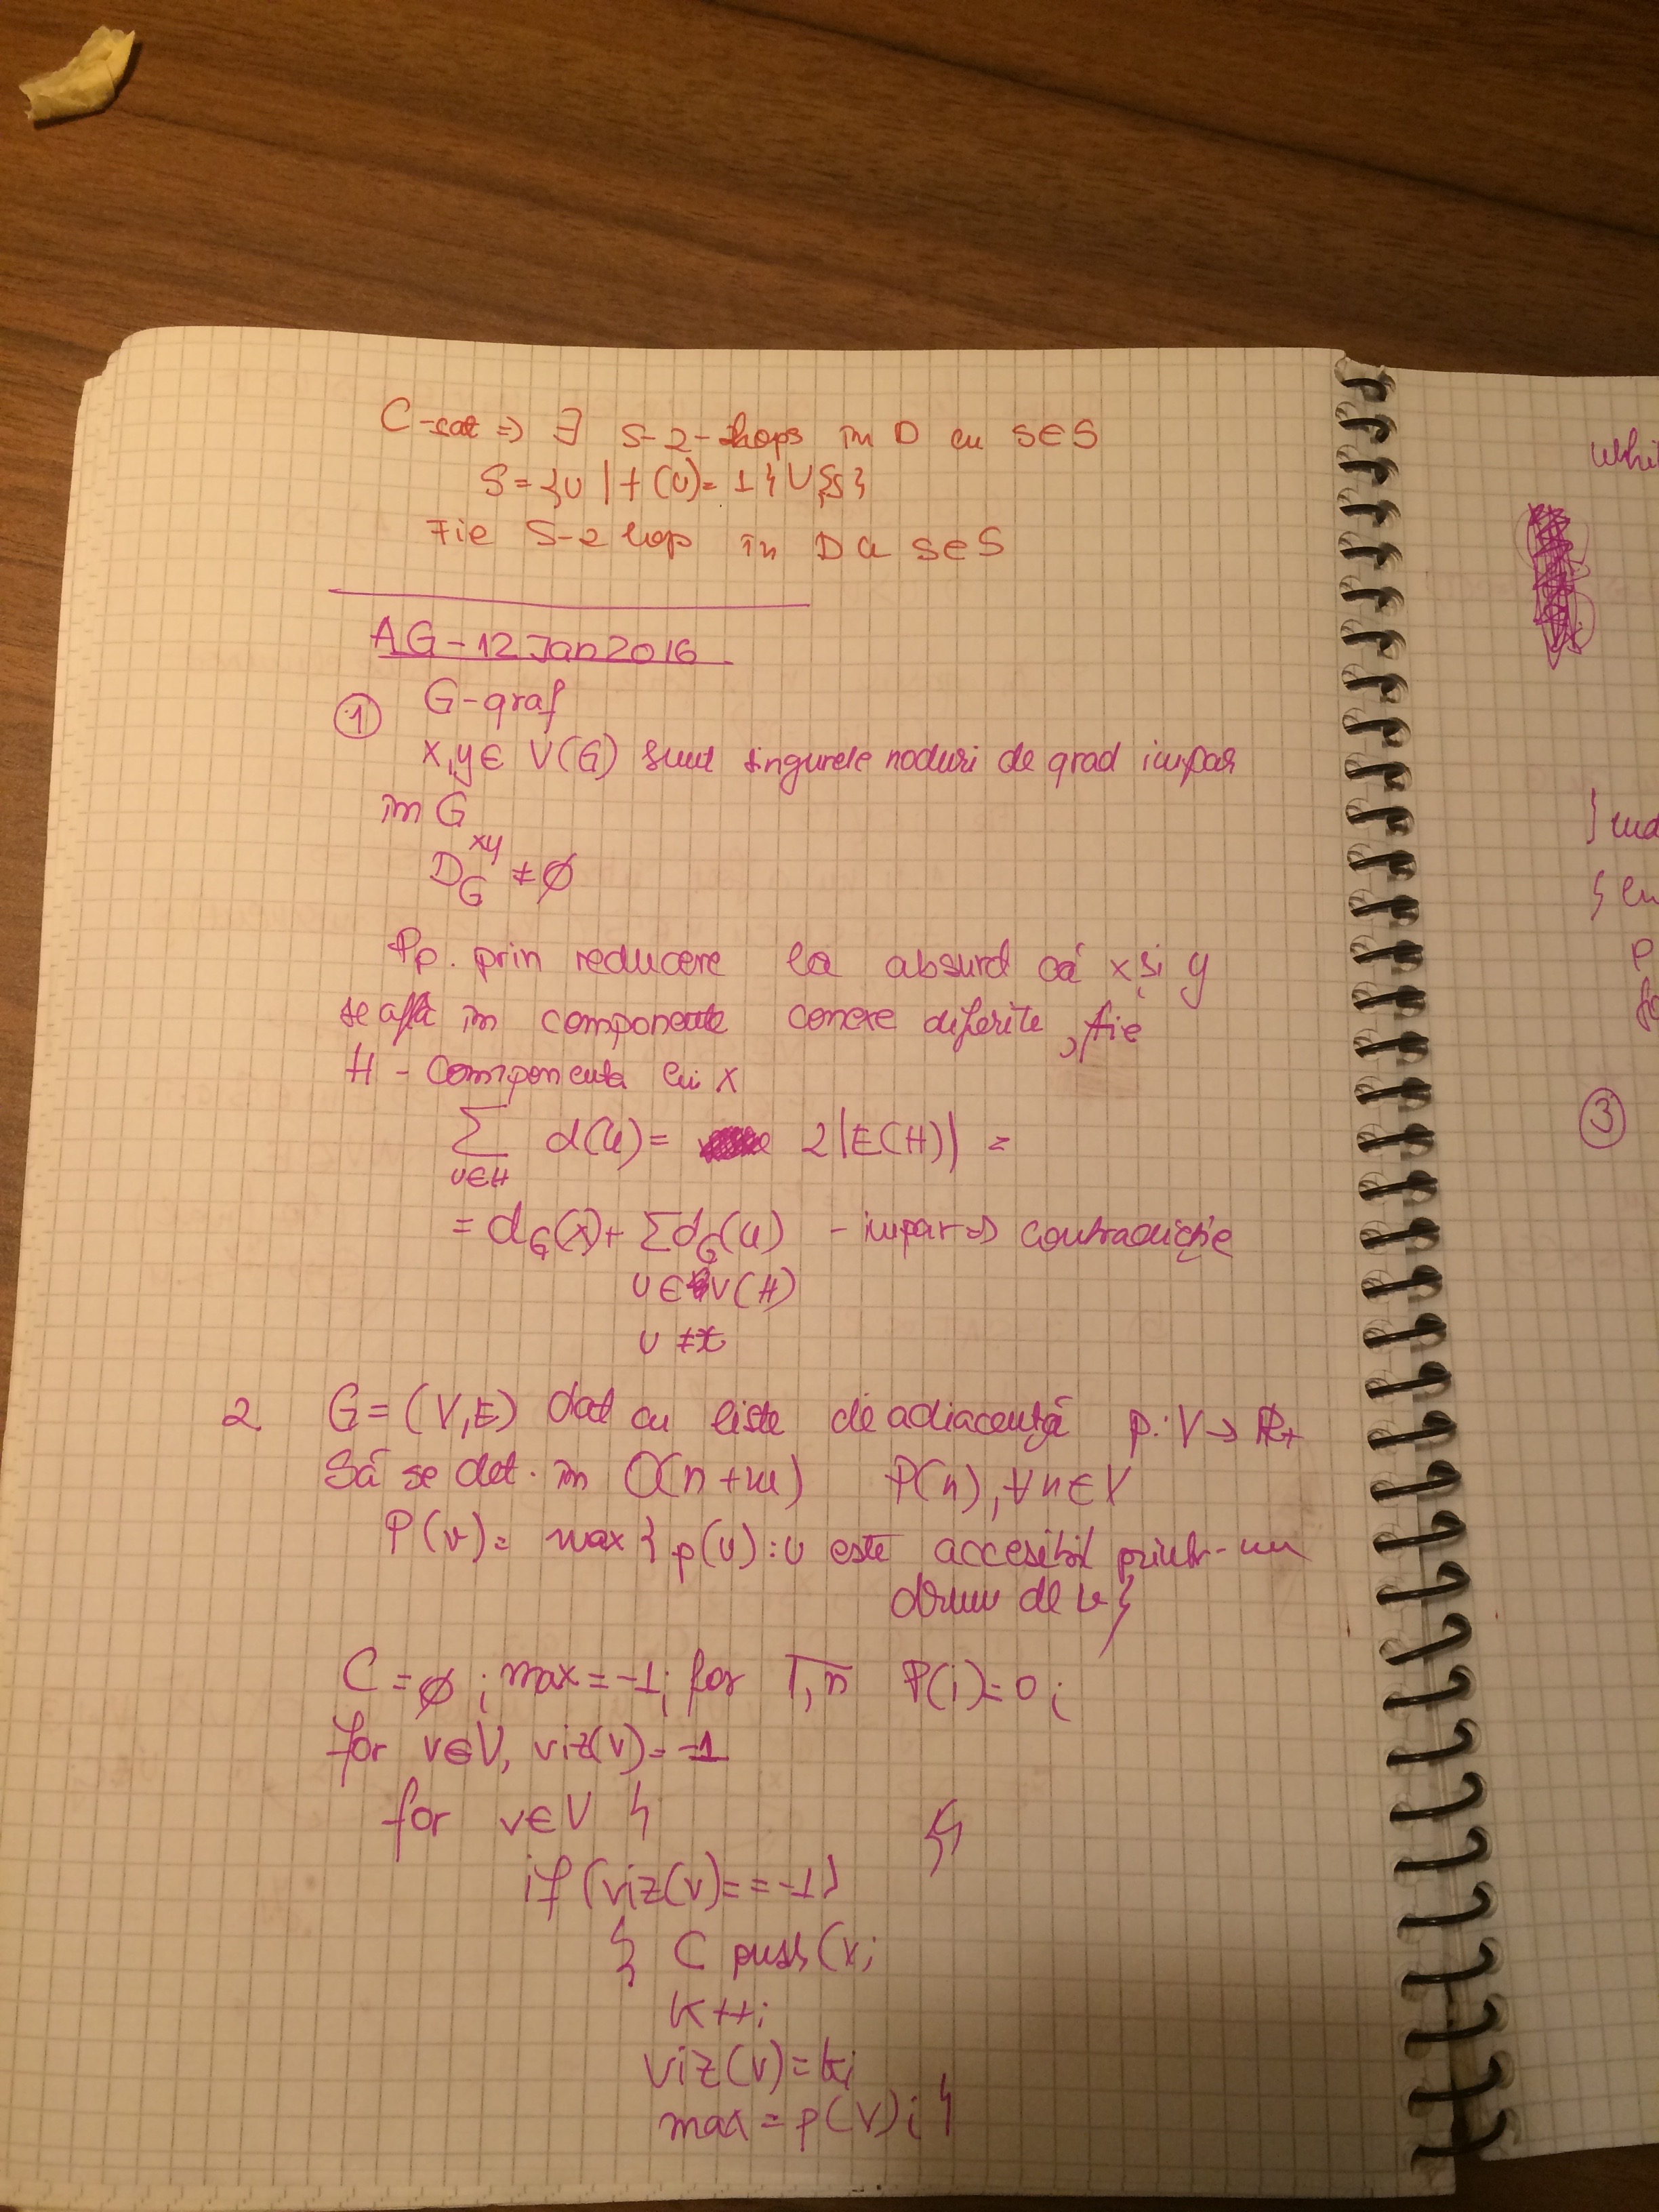 C-sat => ∃ S-2-hops în D cu s∈S
S = {u | t(u) = 1} ∪ {s}
Fie S-2 hop în D cu s∈S
AG - 12 Jan 2016
① G-graf
x,y ∈ V(G) sunt singurele noduri de grad impar
în G
D_G^xy ≠ ∅
Pp. prin reducere la absurd că x și y
se află în componente conexe diferite, fie
H - componenta lui x
∑ d(u) = 2|E(H)| =
u∈H
= d_G(x) + ∑ d_G(u) - impar => contradicție
u ∈ V(H)
u ≠ x
2 G = (V,E) dat cu liste de adiacență p: V → R+
Să se det. în O(n+m) P(n), ∀n∈V
P(v) = max { p(u) : u este accesibil printr-un
drum de v}
C = ∅ ; max = -1; for 1,n P(i) = 0;
for v∈V, viz(v) = -1
for v∈V {
if (viz(v) == -1)
{ C push(v;
k++;
viz(v) = k;
max = p(v); }
whi
③